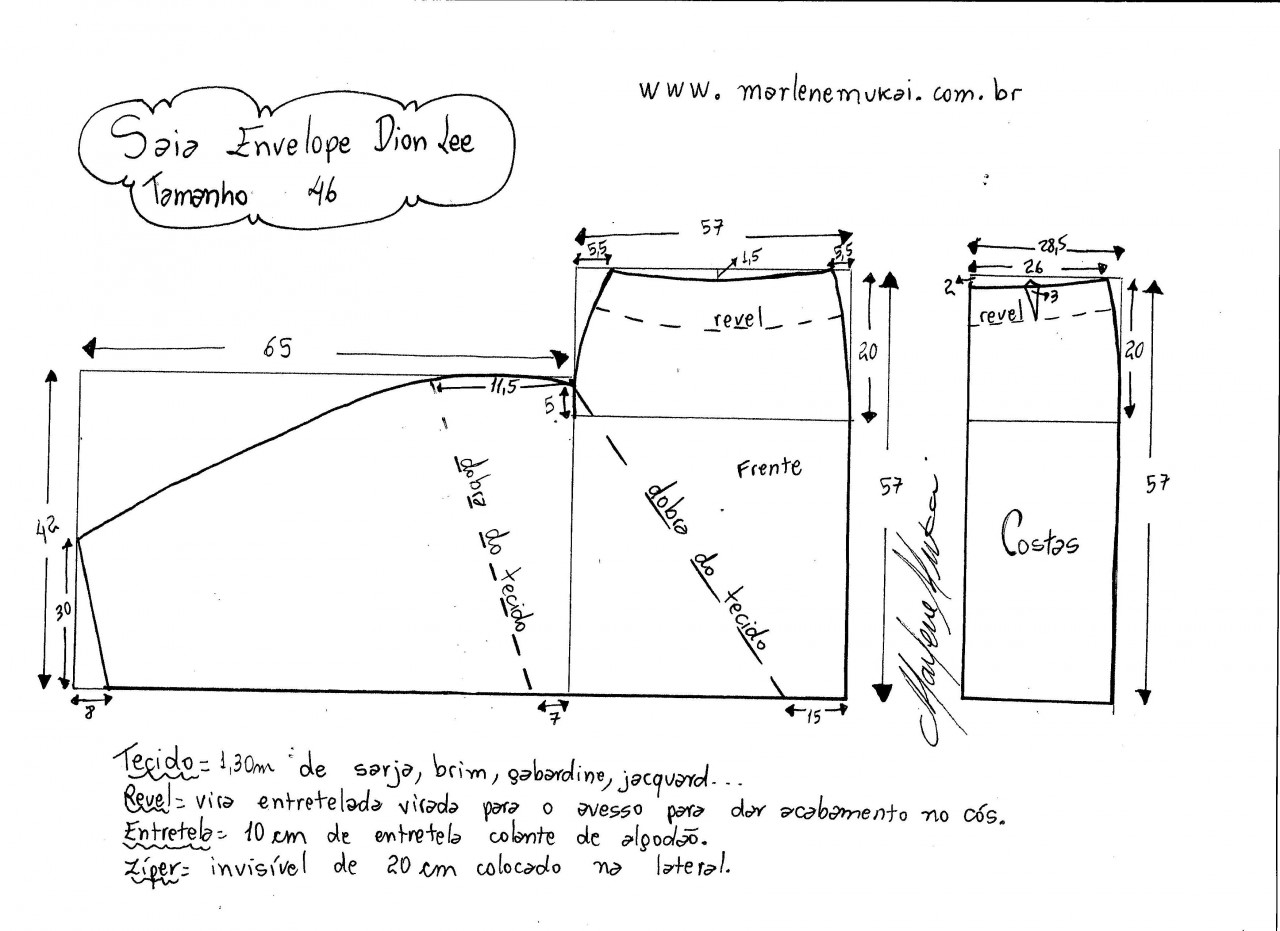 www.marlenemukai.com.br
Saia Envelope Dion Lee
Tamanho 46
57
5,5
1,5
5,5
revel
20
65
11,5
5
Frente
57
42
30
dobra do tecido
dobra do tecido
8
7
15
Marlene Mukai
28,5
26
2
3
revel
20
57
Costas
Tecido = 1,30m de sarja, brim, gabardine, jacquard...
Revel = vira entretelada virada para o avesso para dar acabamento no cós.
Entretela = 10 cm de entretela colante de algodão.
Zíper = invisível de 20 cm colocado na lateral.